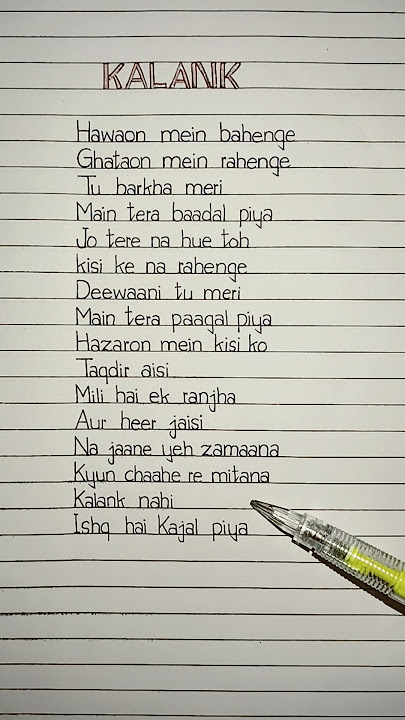 KALANK
Hawaon mein bahenge
Ghataon mein rahenge
Tu barkha meri
Main tera baadal piya
Jo tere na hue toh
kisi ke na rahenge
Deewaani tu meri
Main tera paagal piya
Hazaron mein kisi ko
Taqdir aisi
Mili hai ek ranjha
Aur heer jaisi
Na jaane yeh zamaana
Kyun chaahe re mitana
Kalank nahi
Ishq hai Kajal piya